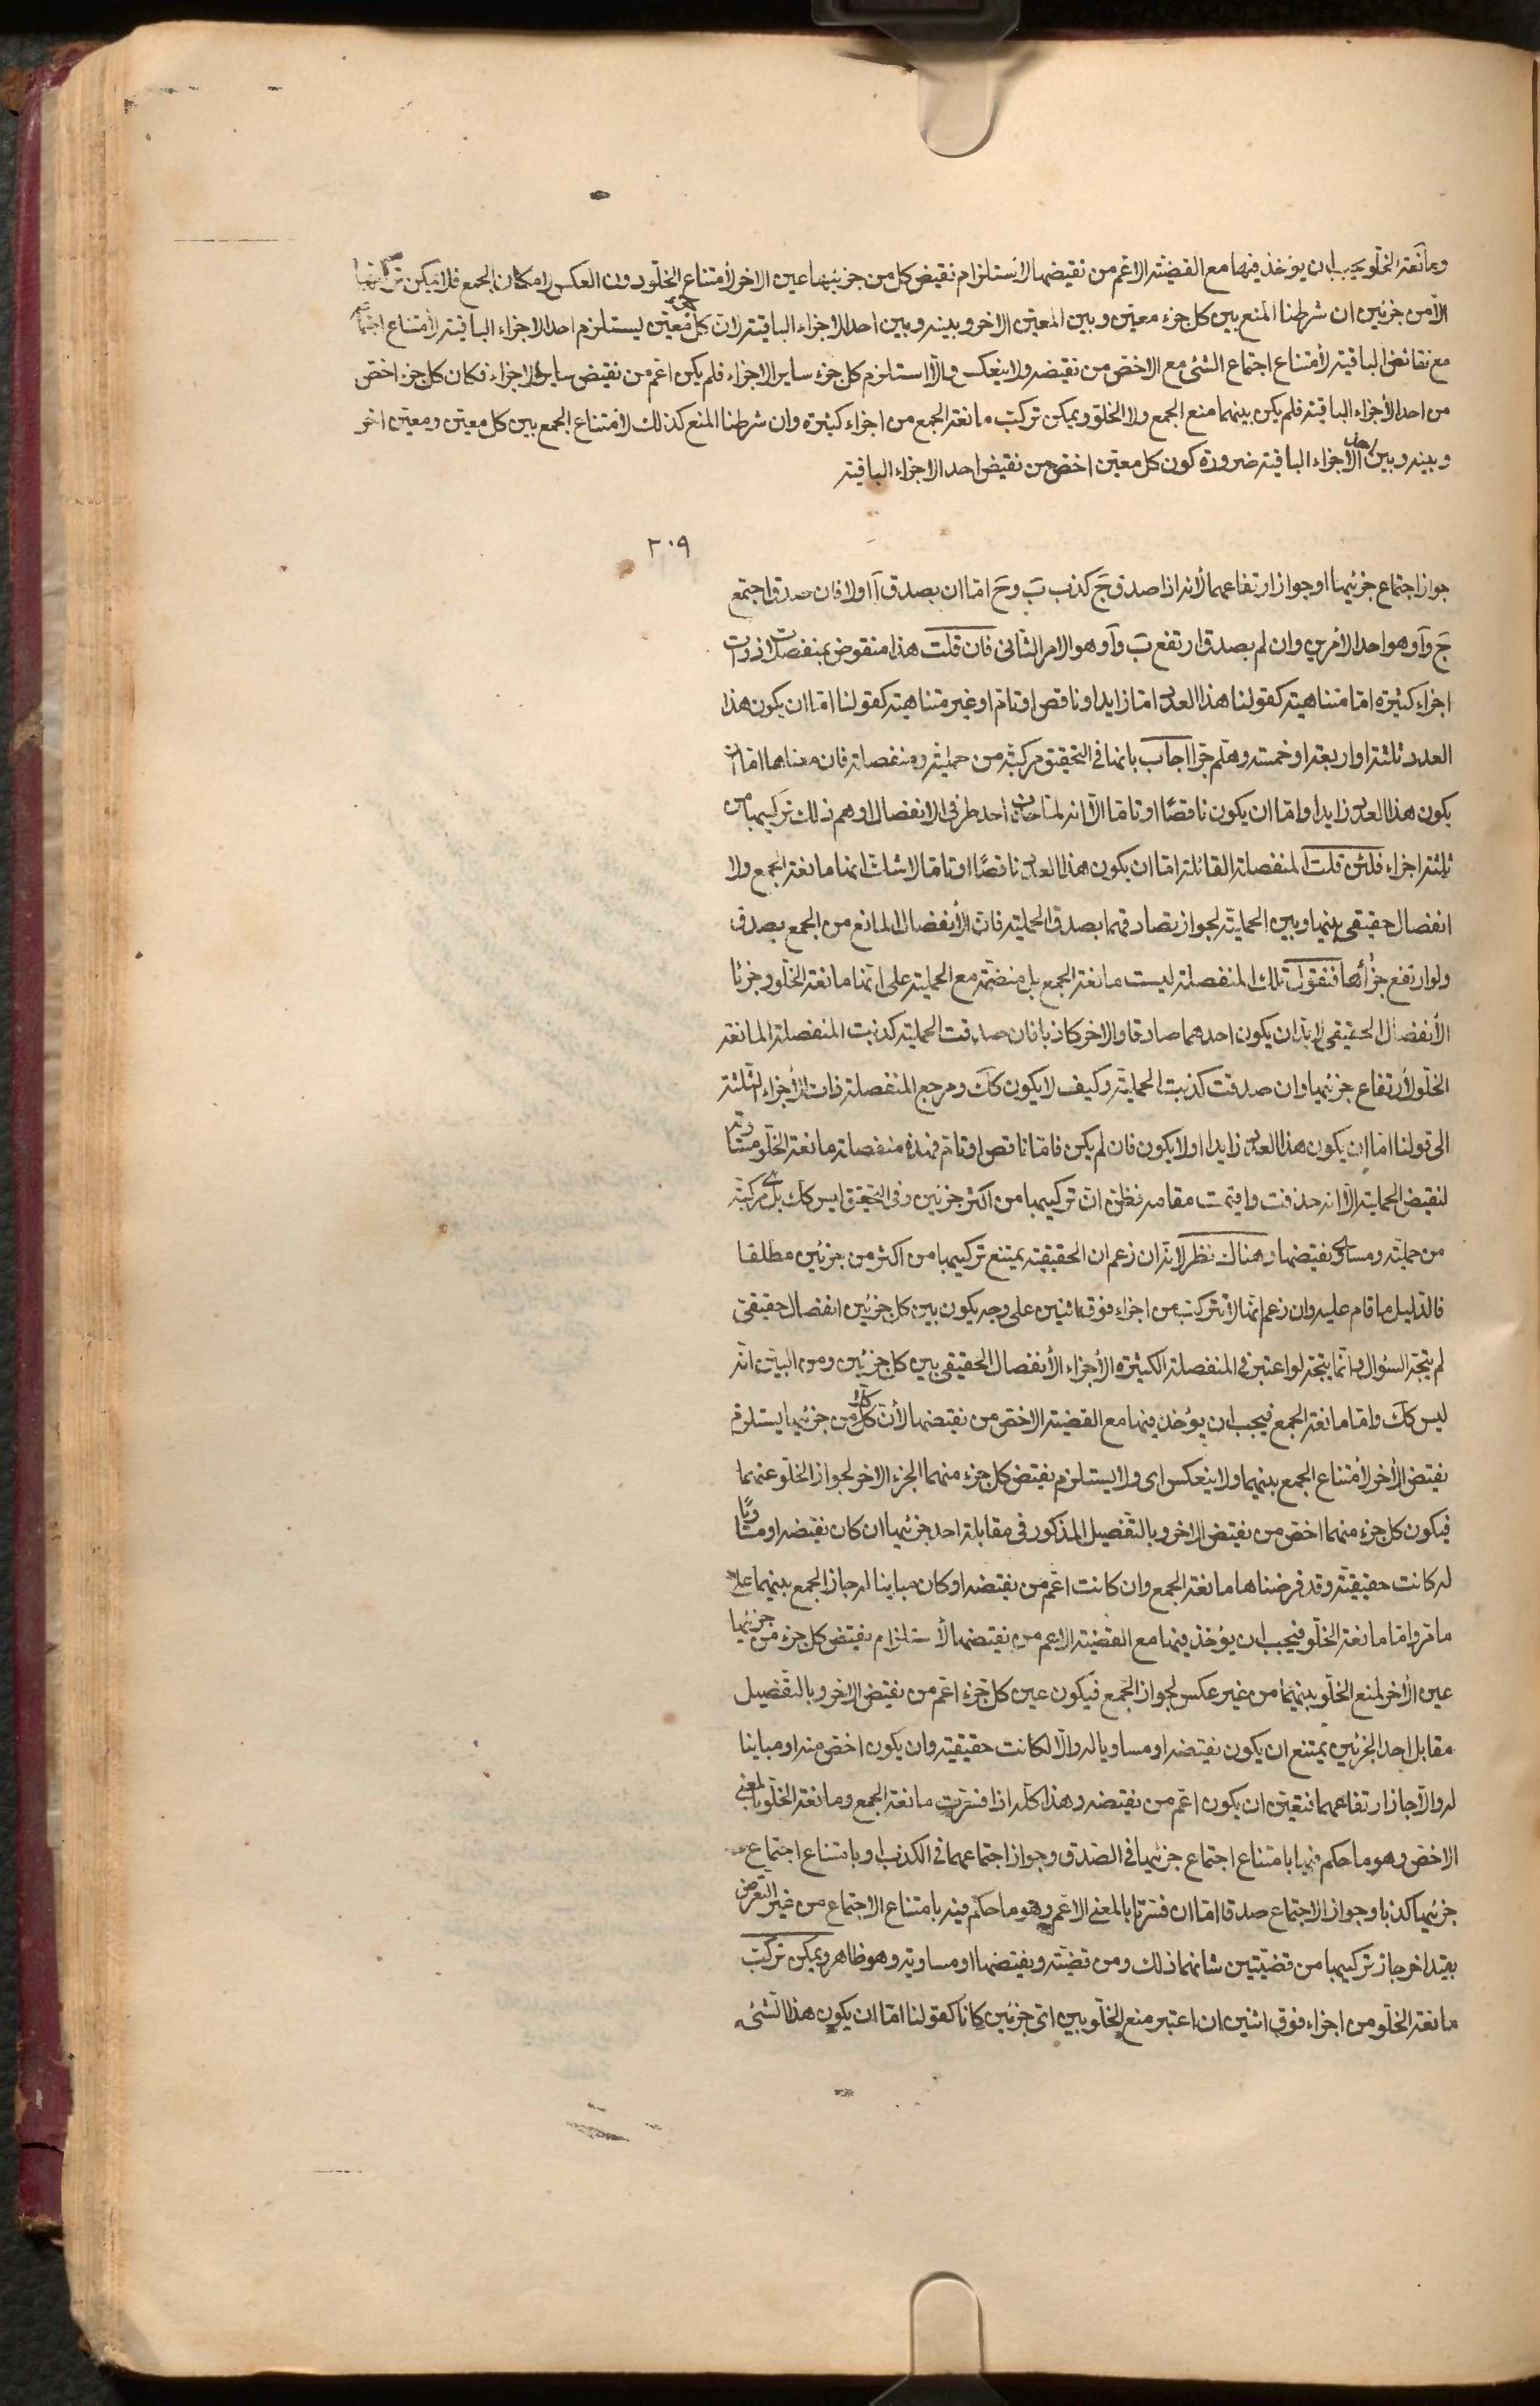 ومانعة الخلو يجب ان يوخذ فيها مع القضية الاعم من نقيضها لاستلزام نقيض كل من جزئيها عين الاخر لامتناع الخلو دون العكس لامكان الجمع فلا يمكن تركيبها
الا من جزئين ان شرطنا المنع بين كل جزء معين وبين المعين الاخر وبينه وبين احد الاجزاء الباقية لان كل معين يستلزم احد الاجزاء الباقية لامتناع اجتماعه
مع نقائض الباقية لامتناع اجتماع الشئ مع الاخص من نقيضه ولا ينعكس والا استلزم كل جزء ساير الاجزاء فلم يكن اعم من نقيض ساير الاجزاء فكان كل جزء اخص
من احد الاجزاء الباقية فلم يكن بينهما منع الجمع ولا الخلو ويمكن تركيب مانعة الجمع من اجزاء كثيرة وان شرطنا المنع كذلك لامتناع الجمع بين كل معين ومعين اخر
وبينه وبين احد الاجزاء الباقية ضرورة كون كل معين اخص من نقيض احد الاجزاء الباقية
٢٠٩
جواز اجتماع جزئيها او جواز ارتفاعهما لانه اذا صدق ج كذب ب وح اما ان يصدق آ اولا فان صدق اجتمع
ج و آ وهو احد الامرين وان لم يصدق ارتفع ب و آ وهو الامر الثانى فان قلت هذا منقوض بمنفصلات ذوات
اجزاء كثيرة اما متناهية كقولنا هذا العدد اما زايد او ناقص او تام او غير متناهية كقولنا اما ان يكون هذا
العدد ثلثة او اربعة او خمسة وهلم جرا اجاب بانها فى التحقيق مركبة من حملية ومنفصلة فان معناها اما ان
يكون هذا العدد زايدا واما ان يكون ناقصًا او تامًا الا انه لما حذف احد طرفى الانفصال اوهم ذلك تركيبها من
ثلثة اجزاء فلئن قلت المنفصلة القائلة اما ان يكون هذا العدد ناقصًا او تاما لا شك انها مانعة الجمع ولا
انفصال حقيقى بينها وبين الحملية لجواز تصادقهما بصدق الحملية فان الانفصال المانع من الجمع يصدق
ولو ارتفع جزأها فنقول تلك المنفصلة ليست مانعة الجمع بل منضمة مع الحملية على انها مانعة الخلو وجزئا
الانفصال الحقيقى لا بد ان يكون احدهما صادقا والاخر كاذبا فان صدقت الحملية كذبت المنفصلة المانعة
الخلو لارتفاع جزئيها وان صدقت كذبت الحملية وكيف لا يكون كك ومرجع المنفصلة ذات الاجزاء الثلثة
الى قولنا اما ان يكون هذا العدد زايدا اولا يكون فان لم يكن فاما ناقص او تام فهذه منفصلة مانعة الخلو مساوية
لنقيض الحملية الا انه حذفت واقيمت مقامه فظن ان تركيبها من اكثر جزئين وفى التحقيق ليس كك بل هى مركبة
من حملية ومساوى نقيضها وهناك نظر لانه ان زعم ان الحقيقية يمتنع تركيبها من اكثر من جزئين مطلقا
فالدليل ما قام عليه وان زعم انها لا تتركب من اجزاء فوق اثنين على وجه يكون بين كل جزئين انفصال حقيقى
لم يتجه السؤال وانما يتجه لو اعتبر فى المنفصلة الكثيرة الاجزاء الانفصال الحقيقى بين كل جزئين ومن البين انه
ليس كك واما مانعة الجمع فيجب ان يؤخذ فيها مع القضية الاخص من نقيضها لان كل جزء من جزئيها يستلزم
نقيض الاخر لامتناع الجمع بينهما ولا ينعكس اى ولا يستلزم نقيض كل جزء منهما الجزء الاخر لجواز الخلو عنهما
فيكون كل جزء منهما اخص من نقيض الاخر وبالتفصيل المذكور فى مقابلة احد جزئيها ان كان نقيضه او مساويًا
له كانت حقيقية وقد فرضناها مانعة الجمع وان كانت اعم من نقيضه او كان مباينا له جاز الجمع بينهما على
ما مر واما مانعة الخلو فيجب ان يؤخذ فيها مع القضية الاعم من نقيضها لاستلزام نقيض كل جزء من جزئيها
عين الاخر لمنع الخلو بينهما من غير عكس لجواز الجمع فيكون عين كل جزء اعم من نقيض الاخر وبالتفصيل
مقابل احد الجزئين يمتنع ان يكون نقيضه او مساويا له والا لكانت حقيقية وان يكون اخص منه او مباينا
له والا جاز ارتفاعهما فتعين ان يكون اعم من نقيضه وهذا كله اذا فسرت مانعة الجمع ومانعة الخلو بالمعنى
الاخص وهو ما حكم فيها بامتناع اجتماع جزئيها فى الصدق وجواز اجتماعهما فى الكذب او بامتناع اجتماع
جزئيها كذبا وجواز الاجتماع صدقا اما ان فسرتا بالمعنى الاعم وهو ما حكم فيه بامتناع الاجتماع من غير التعرض
بقيد اخر جاز تركيبها من قضيتين شانهما ذلك ومن قضية ونقيضها او مساويه وهو ظاهر ويمكن تركب
مانعة الخلو من اجزاء فوق اثنين ان اعتبر منع الخلو بين اى جزئين كانا كقولنا اما ان يكون هذا الشئ